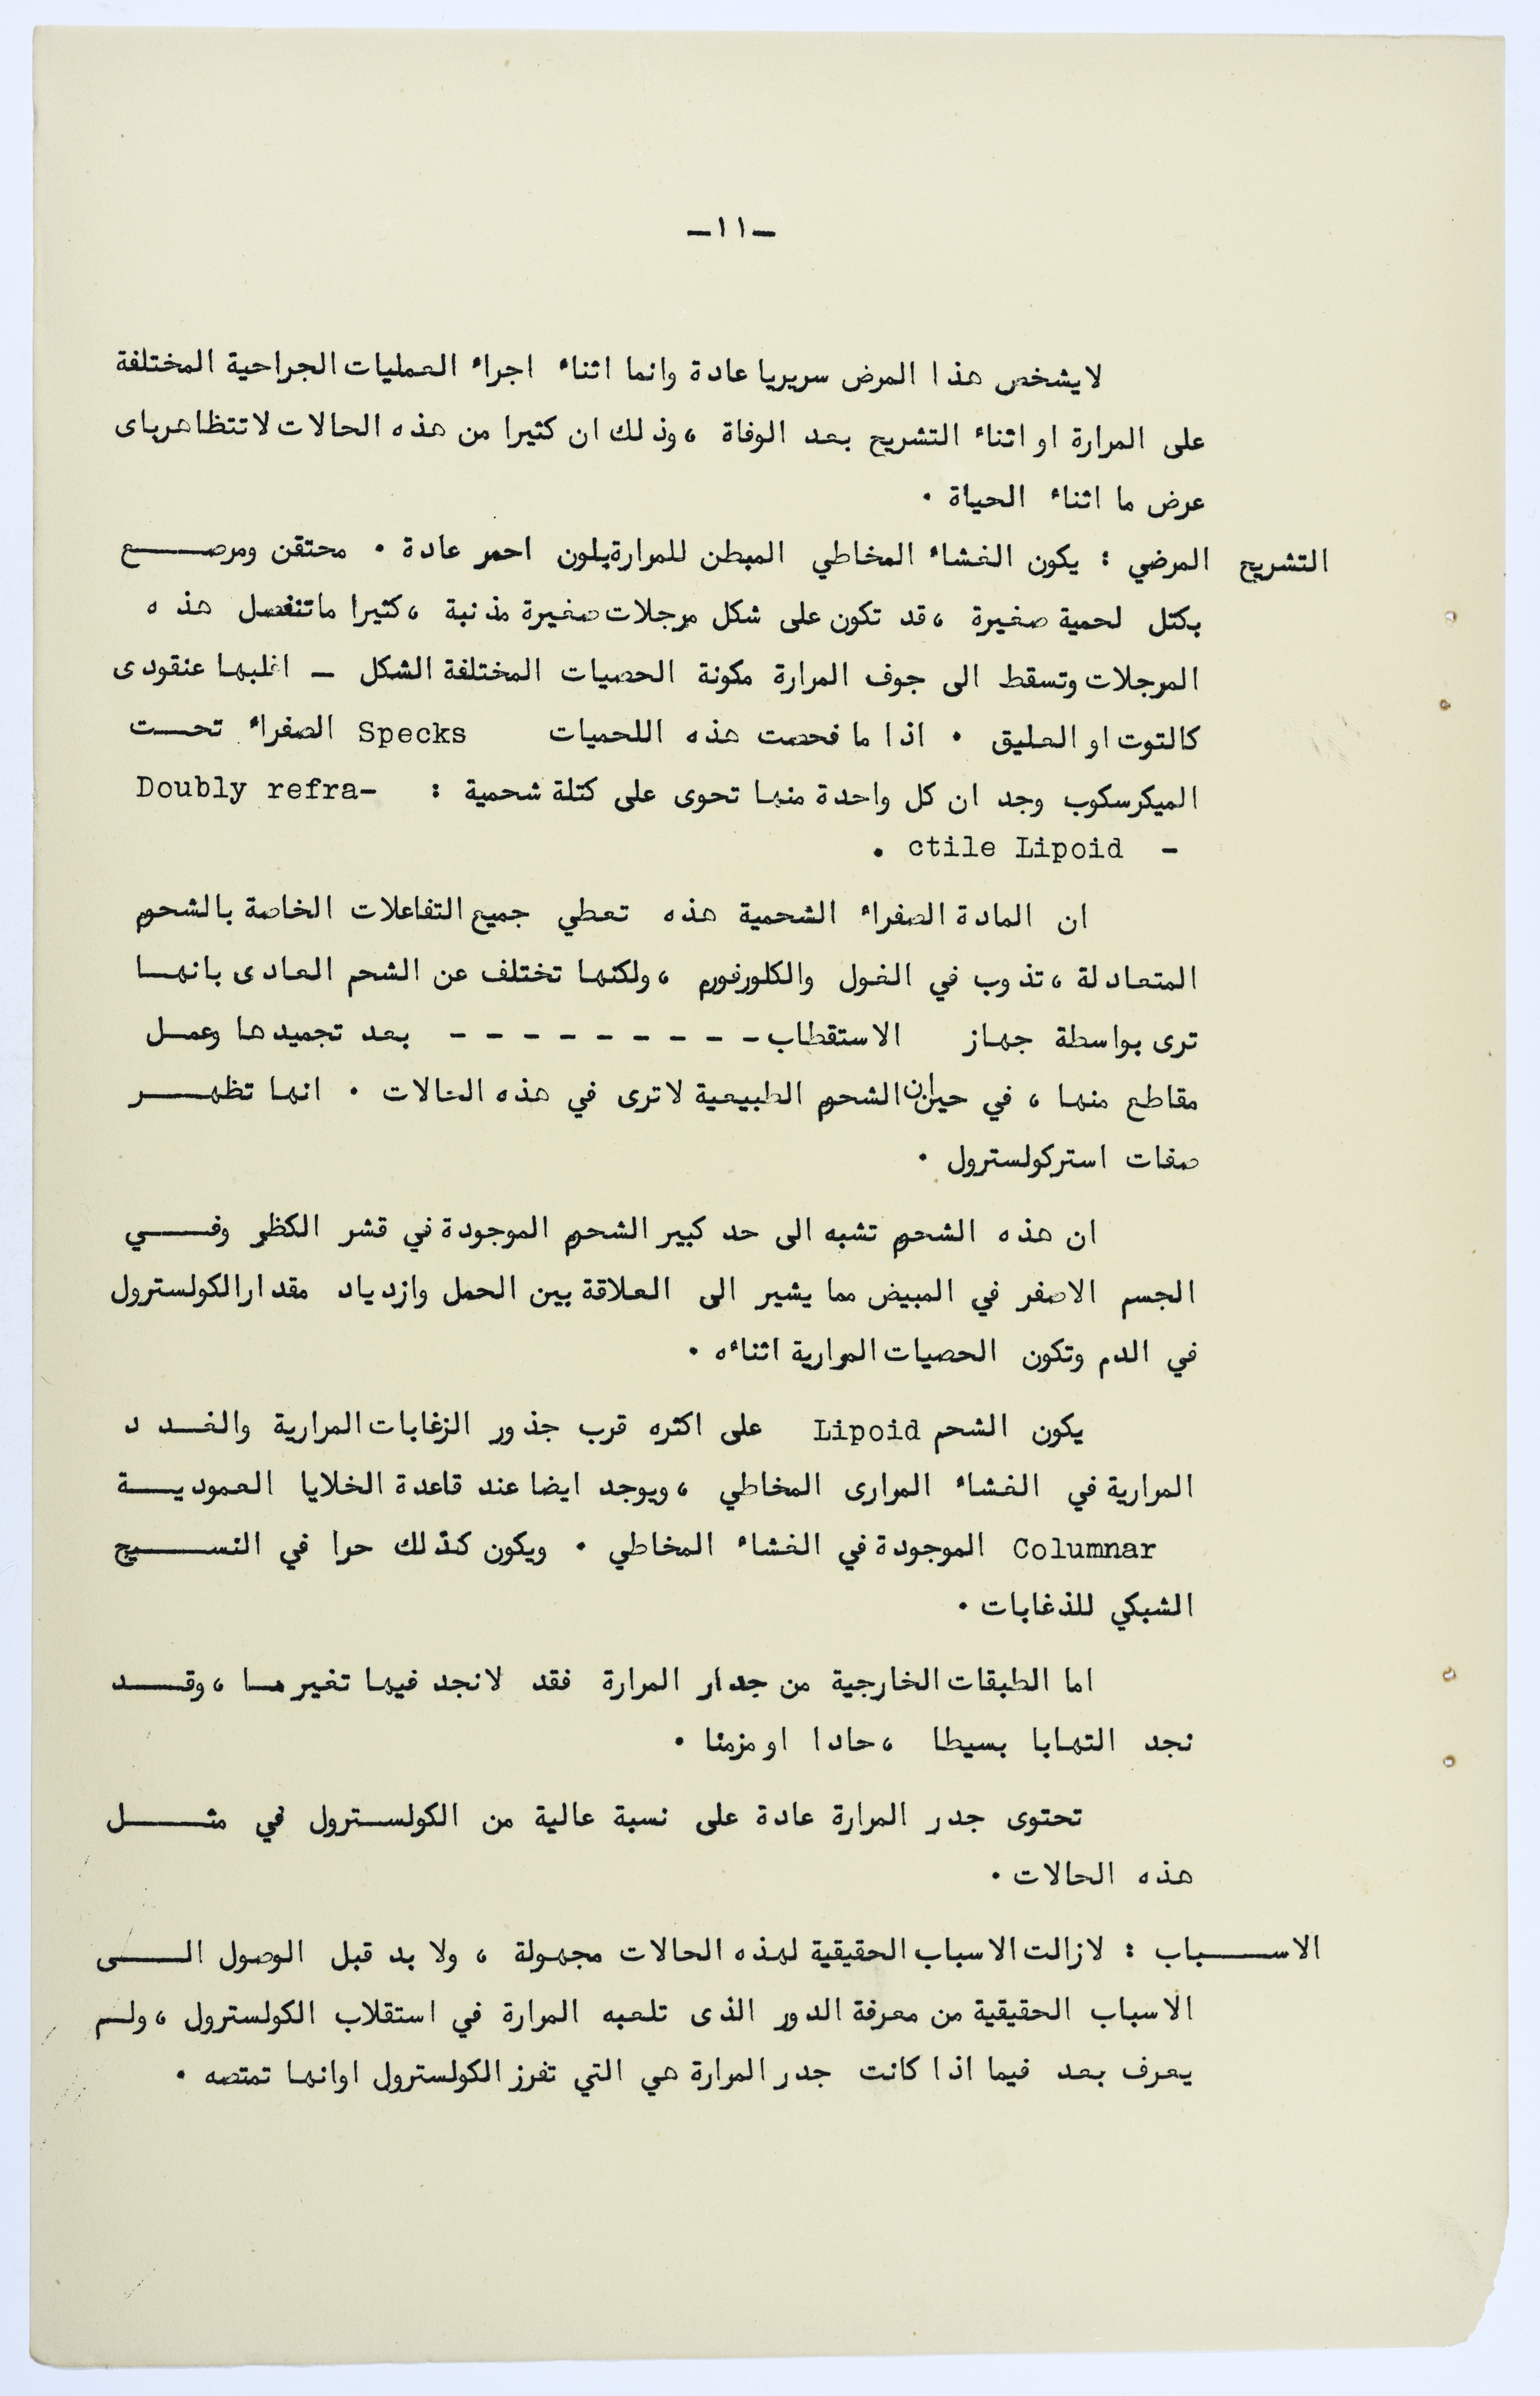 -١١-
لايشخص هذا المرض سريريا عادة وانما اثناء اجراء العمليات الجراحية المختلفة
على المرارة او اثناء التشريح بعد الوفاة ، وذلك ان كثيرا من هذه الحالات لاتتظاهرباى
عرض ما اثناء الحياة .
التشريح المرضي : يكون الغشاء المخاطي المبطن للمرارةبلون احمر عادة . محتقن ومرصع
بكتل لحمية صغيرة ، قد تكون على شكل مرجلات صغيرة مذنبة ، كثيرا ماتنفصل هذه
المرجلات وتسقط الى جوف المرارة مكونة الحصيات المختلفة الشكل - اغلبها عنقودى
كالتوت او العليق . اذا ما فحصت هذه اللحميات Specks الصفراء تحت
الميكرسكوب وجد ان كل واحدة منها تحوى على كتلة شحمية : Doubly refra-
- ctile Lipoid .
ان المادة الصفراء الشحمية هذه تعطي جميع التفاعلات الخاصة بالشحوم
المتعادلة ، تذوب في الغول والكلورفورم ، ولكنها تختلف عن الشحم العادى بانها
ترى بواسطة جهاز الاستقطاب - - - - - - - - - بعد تجميدها وعمل
مقاطع منها ، في حين ان الشحوم الطبيعية لاترى في هذه الحالات . انها تظهر
صفات استركولسترول .
ان هذه الشحوم تشبه الى حد كبير الشحوم الموجودة في قشر الكظر وفي
الجسم الاصفر في المبيض مما يشير الى العلاقة بين الحمل وازدياد مقدارالكولسترول
في الدم وتكون الحصيات المرارية اثناءه .
يكون الشحم Lipoid على اكثره قرب جذور الزغابات المرارية والغدد
المرارية في الغشاء المرارى المخاطي ، ويوجد ايضا عند قاعدة الخلايا العمودية
Columnar الموجودة في الغشاء المخاطي . ويكون كذلك حرا في النسيج
الشبكي للذغابات .
اما الطبقات الخارجية من جدار المرارة فقد لانجد فيها تغير ما ، وقد
نجد التهابا بسيطا ، حادا او مزمنا .
تحتوى جدر المرارة عادة على نسبة عالية من الكولسترول في مثل
هذه الحالات .
الاسباب : لازالت الاسباب الحقيقية لهذه الحالات مجهولة ، ولا بد قبل الوصول الى
الاسباب الحقيقية من معرفة الدور الذى تلعبه المرارة في استقلاب الكولسترول ، ولم
يعرف بعد فيما اذا كانت جدر المرارة هي التي تفرز الكولسترول اوانها تمتصه .